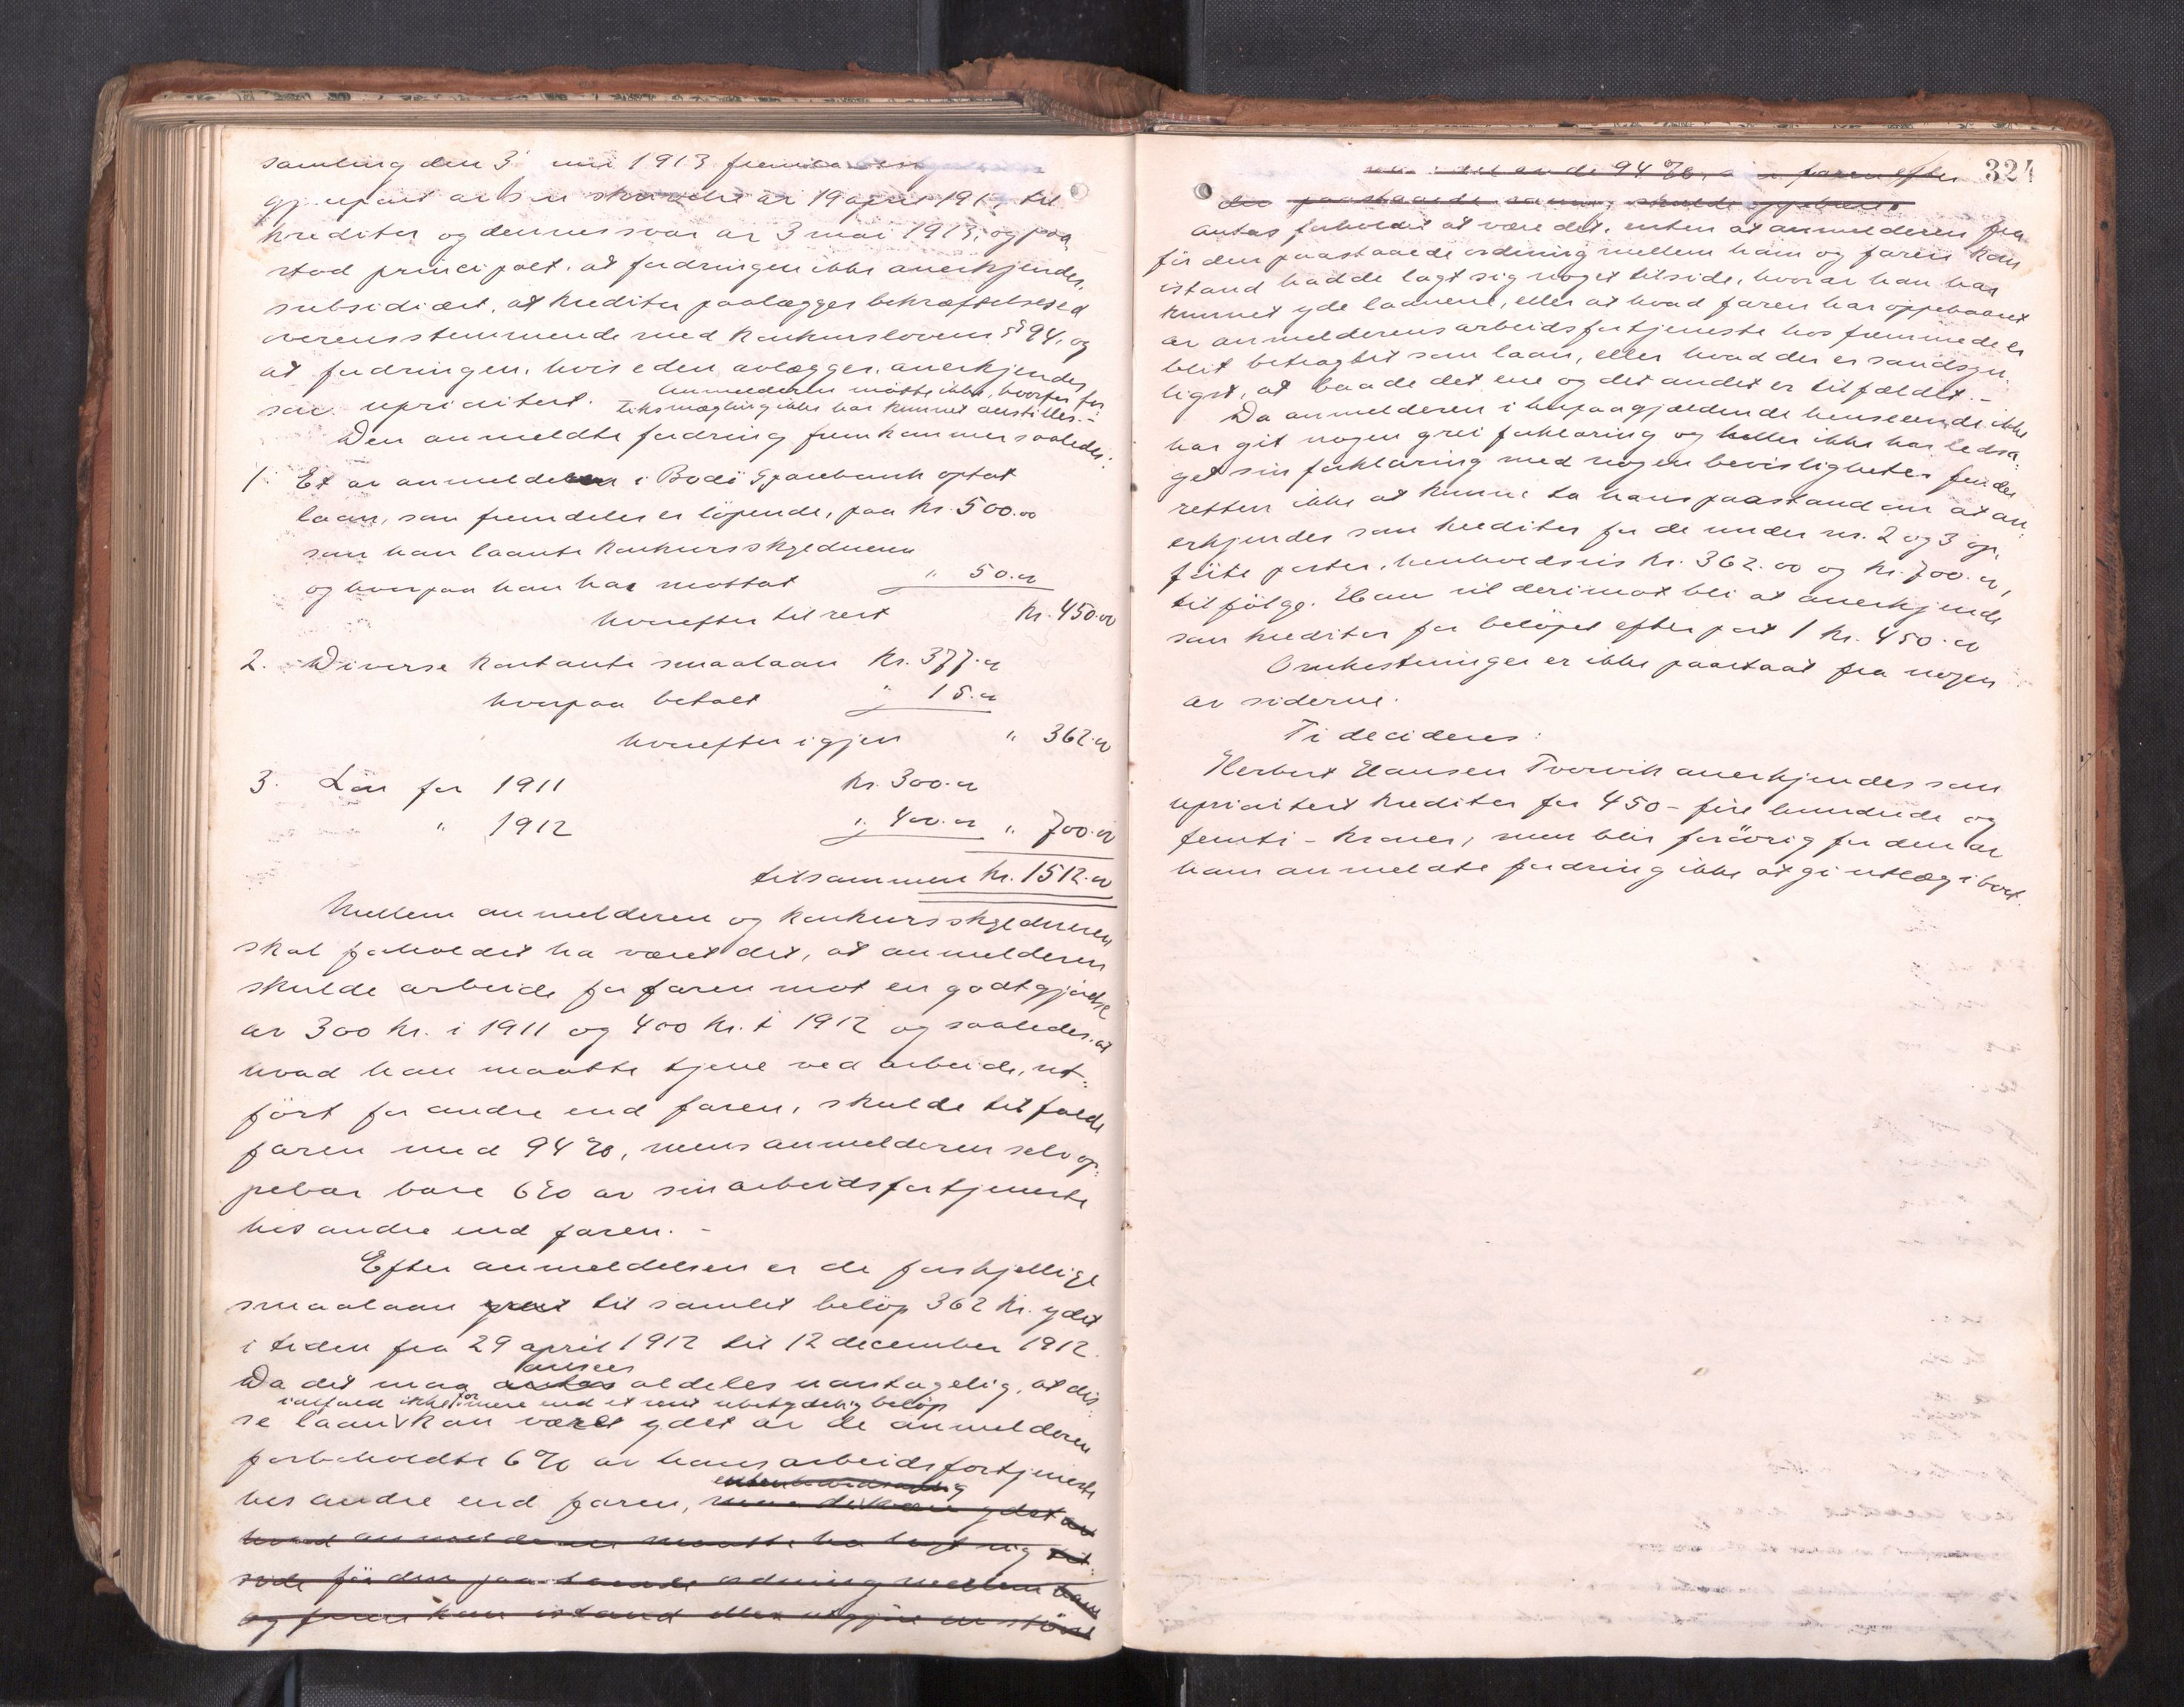 samling den 3 mai 1913
av 19 april 1913 til
kreditor og dennes svar av 3 mai 1913, og paa
stod principalt, at fordringen ikke anerkjendes,
subsidiært, at kreditor paalægges bekræftelsesed
overensstemmende med konkurslovens § 94, og
at fordringen, hvis eden avlægges, anerkjendes
som uprioritert. Anmelderen mötte ikke, hvorfor for-
liksmægling ikke har kunnet anstilles.-
Den anmeldte fordring fremkommer saaledes:
1. Et av anmelderen i Bodö Sparebank optat
laan, som fremdeles er löpende, paa kr. 500.00
som han laante konkursskyldneren
og hvorpaa han har mottat " 50.00
hvorefter til rest kr. 450.00
2. Diverse kontante smaalaan kr. 377.00
hvorpaa betalt " 15.00
hvorefter igjen " 362.00
3. Lön for 1911 kr. 300.00
" 1912 " 400.00 " 700.00
tilsammen kr. 1512.00
Mellem anmelderen og konkursskyldneren
skal forholdet ha været det, at anmelderen
skulde arbeide for faren mot en godtgjörelse
av 300 kr. i 1911 og 400 kr. i 1912 og saaledes at
hvad han maatte tjene ved arbeide, ut-
fört for andre end faren, skulde tilfalde
faren med 94 %, mens anmelderen selv op-
pebar bare 6 % av sin arbeidsfortjeneste
hos andre end faren.-
Efter anmeldelsen er de forskjellige
smaalaan til samlet belöp 362 kr. ydet
i tiden fra 29 april 1912 til 12 december 1912.
ansees
Da det maa antas aldeles uantagelig, at dis-
ialfald ikke for mere end et rent ubetydelig belöp
se laan kan været ydet av de anmelderen
forbeholdte 6 % av hans arbeidsfortjeneste
hos andre end faren, ydet av
hvad anmelderen maatte ha lagt sig til
side för den paastaaede ordning mellem ham
og faren kom istand eller utgjöre en större
324
94 % faren efter
den paastaaede ordning skulde oppebære
antas forholdet at være det, enten at anmelderen fra
för den paastaaede ordning mellem ham og faren kom
istand hadde lagt sig noget tilside, hvorav han har
kunnet yde laanene, eller at hvad faren har oppebaaret
av anmelderens arbeidsfortjeneste hos fremmede er
blit betragtet som laan, eller hvad der er sandsyn-
ligst, at baade det ene og det andet er tilfældet.-
Da anmelderen i henseende ikke
har git nogen grei forklaring og heller ikke har ledsa-
get sin forklaring med nogen bevisligheter finder
retten ikke at kunne ta hans paastand om at an-
erkjendes som kreditor for de under nr. 2 og 3 op-
förte poster, henholdsvis kr. 362.00 og kr. 700.00,
tilfölge. Han vil derimot bli at anerkjende
som kreditor for belöpet efter post 1 kr. 450.00
Omkostninger er ikke paastaat fra nogen
av siderne.
Ti decideres:
Herbert Hansen Tvervik anerkjendes som
uprioritert kreditor for 450 - fire hundrede og
femti - kroner, men blir forövrig for den av
ham anmeldte fordring ikke at gi utlæg i boet.